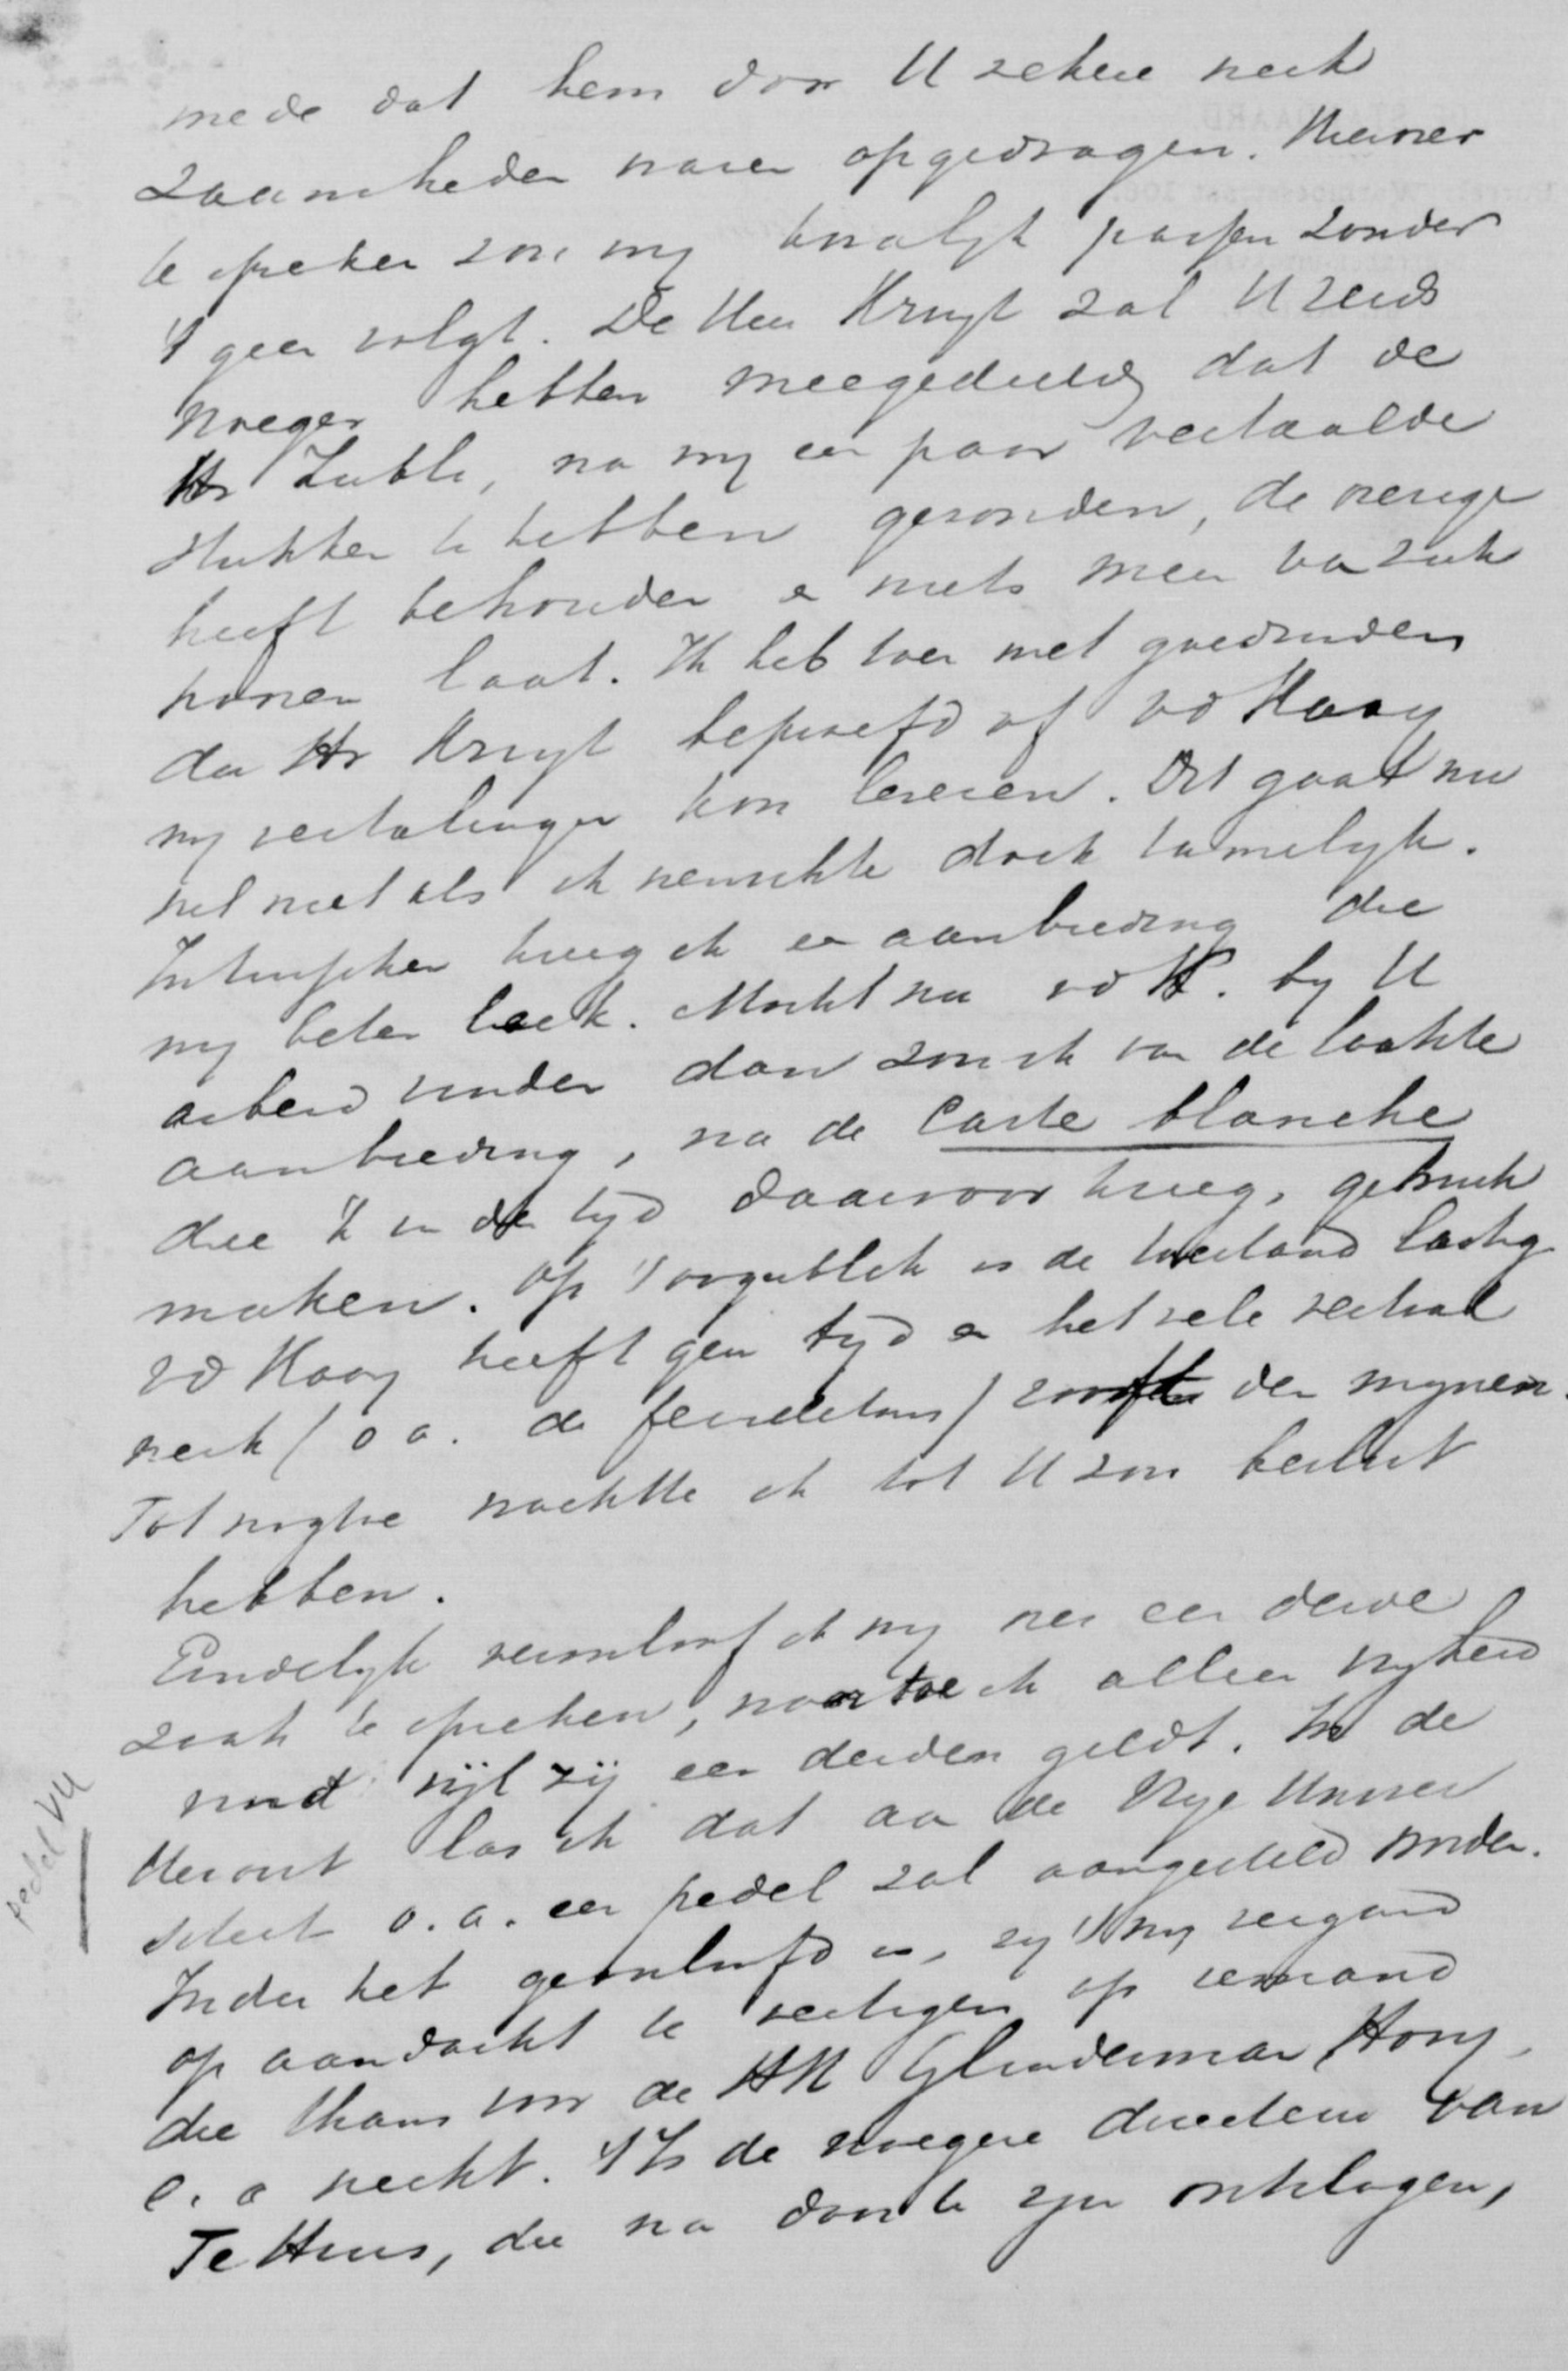 mede dat hem door U zekere werk
zaamheden waren opgedragen. Hierover
te spreken zou my kwalyk passen zonder
't geen volgt. De Heer Kruyt zal U reeds
vroeger hebben meegedeeld dat de
Hr Lubli, na my een paar vertaalde
stukken te hebben gezonden, de overige
heeft behouden en niets meer van zich
horen laat. Ik heb toen met goedvinden
den Hr Kruyt beproefd of vd Kaay
my vertalingen kon leveren. Dit gaat nu
wel niet als ik wenschte doch tamelyk.
Intusschen kreeg ik een aanbieding die
my beter leek. Mocht nu vd K. by U
arbeid vinden dan zou ik van de laatste
aanbieding, na de carte blanche
die 'k in der tyd daarvoor kreeg, gebruik
maken. Op 't oogenblik is de toestand lastig
vd Kaay heeft geen tyd en het vele vertaal
werk (o a. de feuilletons) den mynen.
Tot nogtoe wachtte ik tot U zou beslist
hebben.
Eindelyk veroorloof ik my over een derde
zaak te spreken, waartoe ik alleen vryheid
vind wijl zij een derden geldt. In de
Heraut las ik dat aan de Vrye Univer
siteit o. a. een pedel zal aangesteld worden.
Indien het geoorloofd is, zy 't my vergund
op aandacht te vestigen op iemand
die thans voor de HH Glinderman, Hony,
e. a werkt. 't Is de vroegere directeur van
Te Huis, die na door te zyn ontslagen,
pedel VU